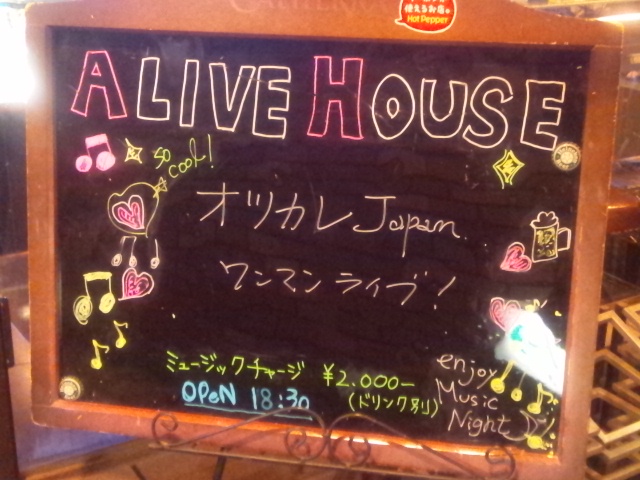 使えるお店
Hot Pepper
ALIVE HOUSE
so cool!
オツカレJapan
ワンマンライブ!
ミュージックチャージ ¥2.000-
(ドリンク別)
OPEN 18:30
enjoy
Music
Night